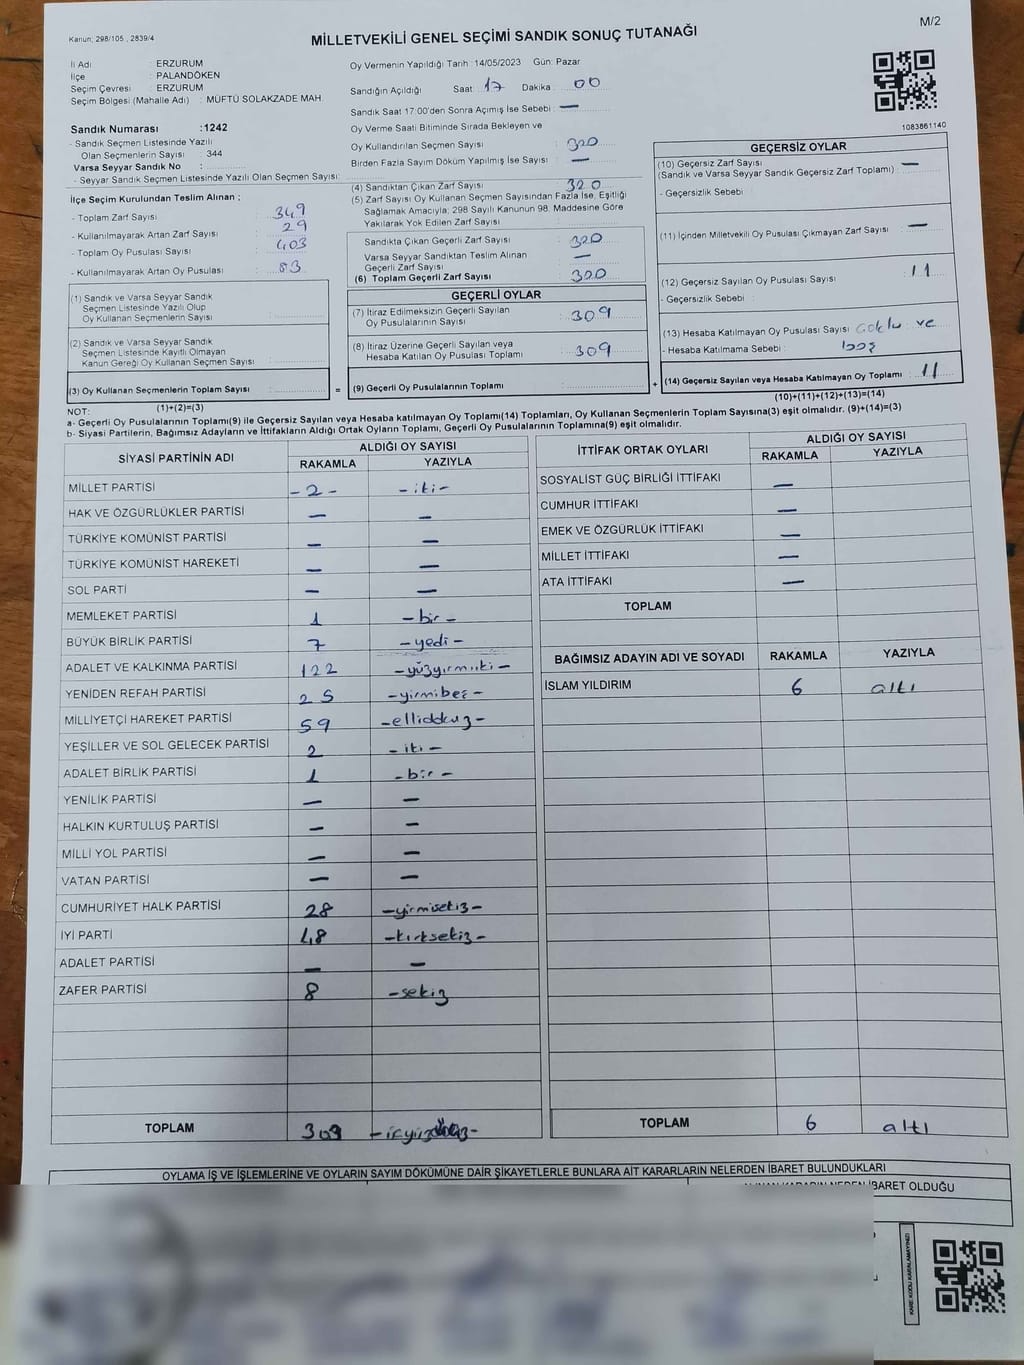 Kanun; 298/105 , 2839/4
MİLLETVEKİLİ GENEL SEÇİMİ SANDIK SONUÇ TUTANAĞI
M/2
İl Adı : ERZURUM
İlçe : PALANDÖKEN
Seçim Çevresi : ERZURUM
Seçim Bölgesi (Mahalle Adı) : MÜFTÜ SOLAKZADE MAH.
Sandık Numarası :1242
- Sandık Seçmen Listesinde Yazılı
Olan Seçmenlerin Sayısı : 344
Varsa Seyyar Sandık No :
- Seyyar Sandık Seçmen Listesinde Yazılı Olan Seçmen Sayısı:
İlçe Seçim Kurulundan Teslim Alınan ;
- Toplam Zarf Sayısı : 349
- Kullanılmayarak Artan Zarf Sayısı : 29
- Toplam Oy Pusulası Sayısı : 403
- Kullanılmayarak Artan Oy Pusulası : 83
(1) Sandık ve Varsa Seyyar Sandık
Seçmen Listesinde Yazılı Olup
Oy Kullanan Seçmenlerin Sayısı :
(2) Sandık ve Varsa Seyyar Sandık
Seçmen Listesinde Kayıtlı Olmayan
Kanun Gereği Oy Kullanan Seçmen Sayısı :
(3) Oy Kullanan Seçmenlerin Toplam Sayısı :
(1)+(2)=(3)
Oy Vermenin Yapıldığı Tarih :14/05/2023 Gün: Pazar
Sandığın Açıldığı Saat : 17 Dakika : 00
Sandık Saat 17:00'den Sonra Açımış İse Sebebi : —
Oy Verme Saati Bitiminde Sırada Bekleyen ve
Oy Kullandırılan Seçmen Sayısı : 320
Birden Fazla Sayım Döküm Yapılmış İse Sayısı : —
(4) Sandıktan Çıkan Zarf Sayısı : 320
(5) Zarf Sayısı Oy Kullanan Seçmen Sayısından Fazla İse, Eşitliği
Sağlamak Amacıyla; 298 Sayılı Kanunun 98. Maddesine Göre
Yakılarak Yok Edilen Zarf Sayısı :
Sandıkta Çıkan Geçerli Zarf Sayısı : 320
Varsa Seyyar Sandıktan Teslim Alınan
Geçerli Zarf Sayısı : —
(6) Toplam Geçerli Zarf Sayısı : 320
GEÇERLİ OYLAR
(7) İtiraz Edilmeksizin Geçerli Sayılan
Oy Pusulalarının Sayısı : 309
(8) İtiraz Üzerine Geçerli Sayılan veya
Hesaba Katılan Oy Pusulası Toplamı : 309
= (9) Geçerli Oy Pusulalarının Toplamı :
1083861140
GEÇERSİZ OYLAR
(10) Geçersiz Zarf Sayısı
(Sandık ve Varsa Seyyar Sandık Geçersiz Zarf Toplamı) : —
- Geçersizlik Sebebi :
(11) İçinden Milletvekili Oy Pusulası Çıkmayan Zarf Sayısı : —
(12) Geçersiz Sayılan Oy Pusulası Sayısı : 11
- Geçersizlik Sebebi :
(13) Hesaba Katılmayan Oy Pusulası Sayısı : ve
- Hesaba Katılmama Sebebi : boş
+ (14) Geçersiz Sayılan veya Hesaba Katılmayan Oy Toplamı : 11
(10)+(11)+(12)+(13)=(14)
NOT:
a- Geçerli Oy Pusulalarının Toplamı(9) ile Geçersiz Sayılan veya Hesaba katılmayan Oy Toplamı(14) Toplamları, Oy Kullanan Seçmenlerin Toplam Sayısına(3) eşit olmalıdır. (9)+(14)=(3)
b- Siyasi Partilerin, Bağımsız Adayların ve İttifakların Aldığı Ortak Oyların Toplamı, Geçerli Oy Pusulalarının Toplamına(9) eşit olmalıdır.
SİYASİ PARTİNİN ADI ALDIĞI OY SAYISI
RAKAMLA YAZIYLA
MİLLET PARTİSİ -2- -iki-
HAK VE ÖZGÜRLÜKLER PARTİSİ — —
TÜRKİYE KOMÜNİST PARTİSİ — —
TÜRKİYE KOMÜNİST HAREKETİ — —
SOL PARTİ — —
MEMLEKET PARTİSİ 1 -bir-
BÜYÜK BİRLİK PARTİSİ 7 -yedi-
ADALET VE KALKINMA PARTİSİ 122 -yüzyirmiiki-
YENİDEN REFAH PARTİSİ 25 -yirmibeş-
MİLLİYETÇİ HAREKET PARTİSİ 59 -ellidokuz-
YEŞİLLER VE SOL GELECEK PARTİSİ 2 -iki-
ADALET BİRLİK PARTİSİ 1 -bir-
YENİLİK PARTİSİ — —
HALKIN KURTULUŞ PARTİSİ — —
MİLLİ YOL PARTİSİ — —
VATAN PARTİSİ — —
CUMHURİYET HALK PARTİSİ 28 -yirmisekiz-
İYİ PARTİ 48 -kırksekiz-
ADALET PARTİSİ — —
ZAFER PARTİSİ 8 -sekiz
TOPLAM 309
İTTİFAK ORTAK OYLARI ALDIĞI OY SAYISI
RAKAMLA YAZIYLA
SOSYALİST GÜÇ BİRLİĞİ İTTİFAKI —
CUMHUR İTTİFAKI —
EMEK VE ÖZGÜRLÜK İTTİFAKI —
MİLLET İTTİFAKI —
ATA İTTİFAKI —
TOPLAM
BAĞIMSIZ ADAYIN ADI VE SOYADI RAKAMLA YAZIYLA
İSLAM YILDIRIM 6 altı
TOPLAM 6 altı
OYLAMA İŞ VE İŞLEMLERİNE VE OYLARIN SAYIM DÖKÜMÜNE DAİR ŞİKAYETLERLE BUNLARA AİT KARARLARIN NELERDEN İBARET BULUNDUKLARI
İBARET OLDUĞU
KARE KODU KARALAMAYINIZ!